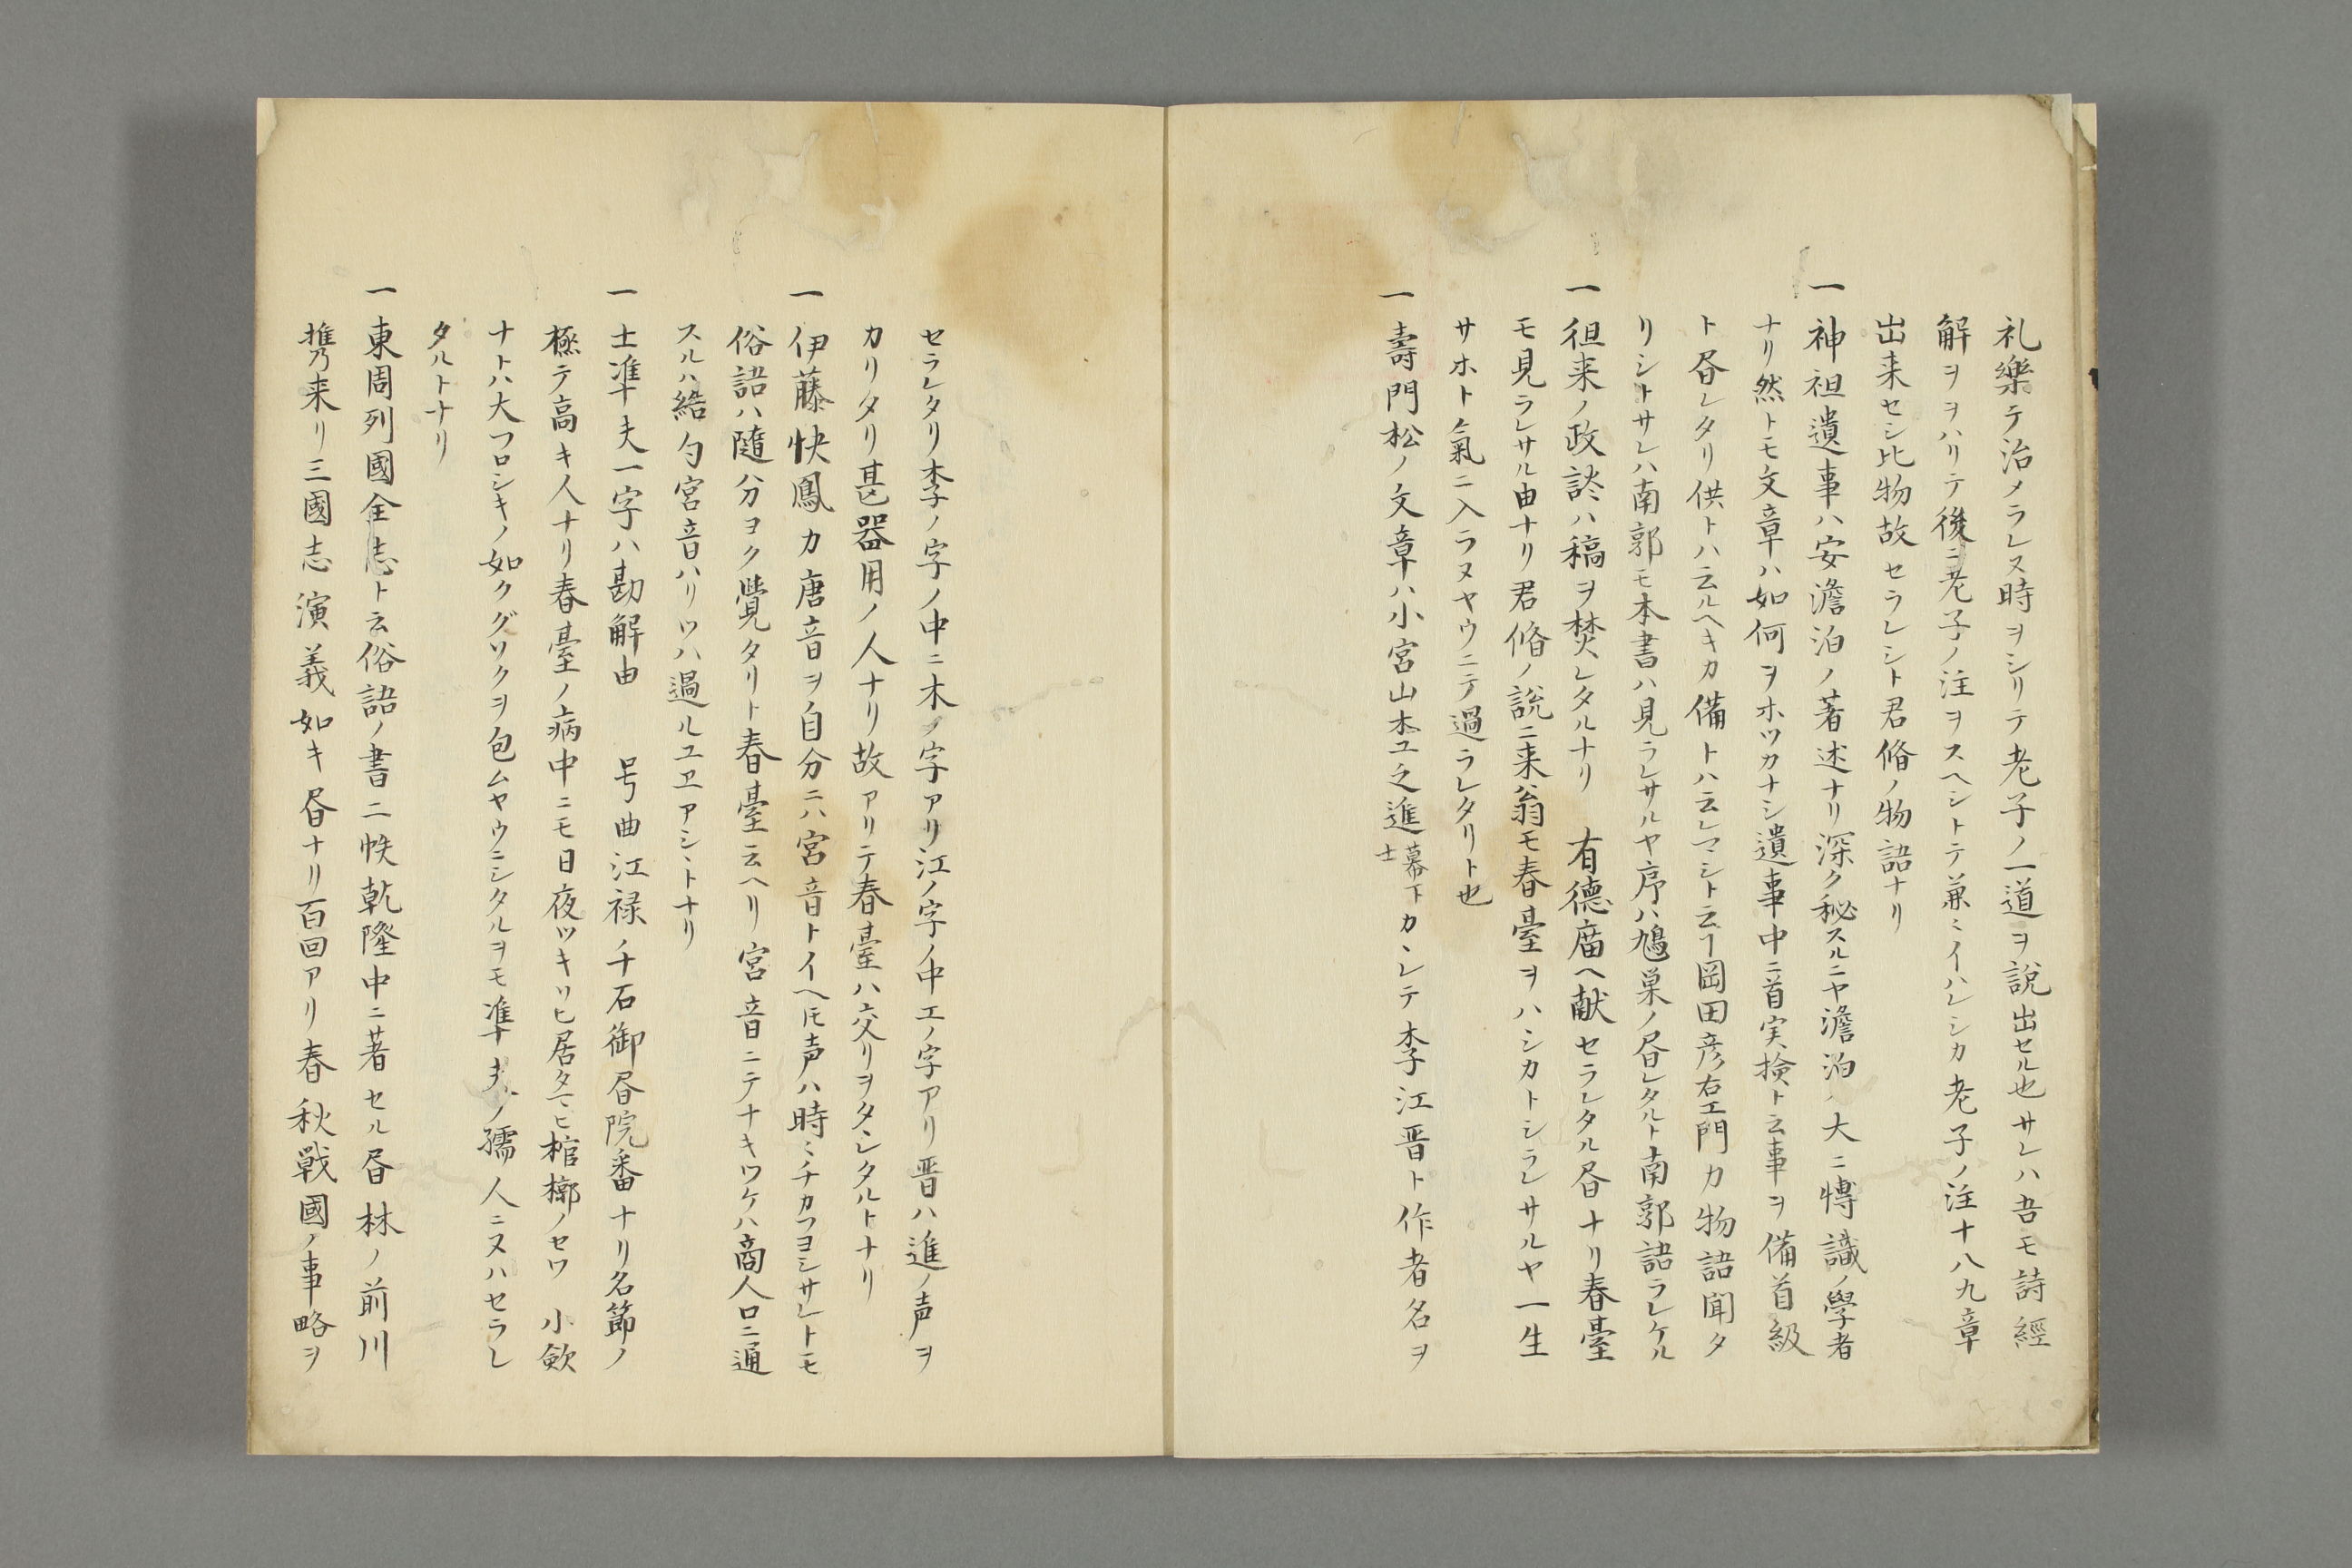 礼樂テ治メラレヌ時ヲシリテ老子ノ一道ヲ説出セル也サレハ吾モ詩經
解ヲヲハリテ後ニ老子ノ注ヲスヘシトテ兼ミイハレシカ老子ノ注十八九章
出来セシ比物故セラレシト君脩ノ物語ナリ
一神祖遺事ハ安澹泊ノ著述ナリ深ク秘スルニヤ澹泊ハ大ニ博識ノ學者
ナリ然トモ文章ハ如何ヲホツカナシ遺事中ニ首実撿ト云事ヲ備首級
ト昏レタリ供トハ云ルヘキカ備トハ云レマシト云ヿ岡田彦右エ門カ物語聞タ
リシトサレハ南郭モ本書ハ見ラレサルヤ序ハ鳩巣ノ昏レタルト南郭語ラレケル
一徂来ノ政談ハ稿ヲ焚レタルナリ 有德庿ヘ献セラレタル昏ナリ春臺
モ見ラレサル由ナリ君脩ノ説ニ来翁モ春臺ヲハシカトシラレサルヤ一生
サホト氣ニ入ラヌヤウニテ過ラレタリト也
一壽門松ノ文章ハ小宮山杢エ之進幕下士カヽレテ李江晋ト作者名ヲ
セラレタリ李ノ字ノ中ニ木ノ字アリ江ノ字ノ中エノ字アリ晋ハ進ノ声ヲ
カリタリ甚器用ノ人ナリ故アリテ春臺ハ交リヲタヽレタルトナリ
一伊藤快鳳カ唐音ヲ自分ニハ宮音トイヘ𪜈声ハ時ミチカフヨシサレトモ
俗語ハ随分ヨク覺タリト春臺云ヘリ宮音ニテナキワケハ商人口ニ通
スルハ絡勺宮音ハリツハ過ルユヱアシヽトナリ
一士準夫一字ハ勘解由 号曲江禄千石御昏院番ナリ名節ノ
極テ高キ人ナリ春臺ノ病中ニモ日夜ツキソヒ居タマヒ棺槨ノセワ小歛
ナトハ大フロシキノ如クグソクヲ包ムヤウニシタルヲモ準夫ノ孺人ニヌハセラレ
タルトナリ
一東周列國全志ト云俗語ノ書二帙乾隆中ニ著セル昏林ノ前川
携来リ三國志演義如キ昏ナリ百回アリ春秋戰國ノ事略ヲ